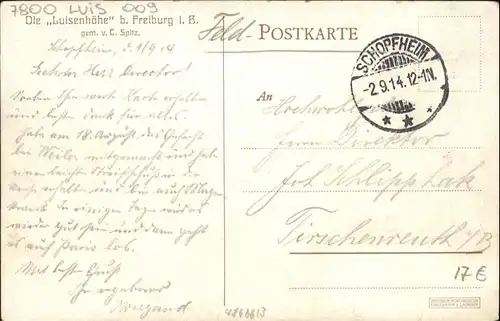 7800 LUIS 009
Die „Luisenhöhe" b. Freiburg i. B.
gem. v. C. Spitz.
Feld-POSTKARTE
Schopfheim, d. 1/9 14
Geehrter Herr Director!
Soeben Ihre werte Karte erhalten
und besten Dank für alles.
Habe am 18. August das Gefecht
bei Weiler mitgemacht und habe
einen leicht Streifschuß in die
erhalten und bin auch Magen
krank. In einigen Tagen wird es
wieder gut sein und dann geht
es auf Paris los.
Mit besten Gruß
Ihr ergebener
Wiegand
SCHOPFHEIM
-2.9.14.12-1N.
* *
An
Herrn Direktor
Jos.
Tirschenreuth i/B
17 €